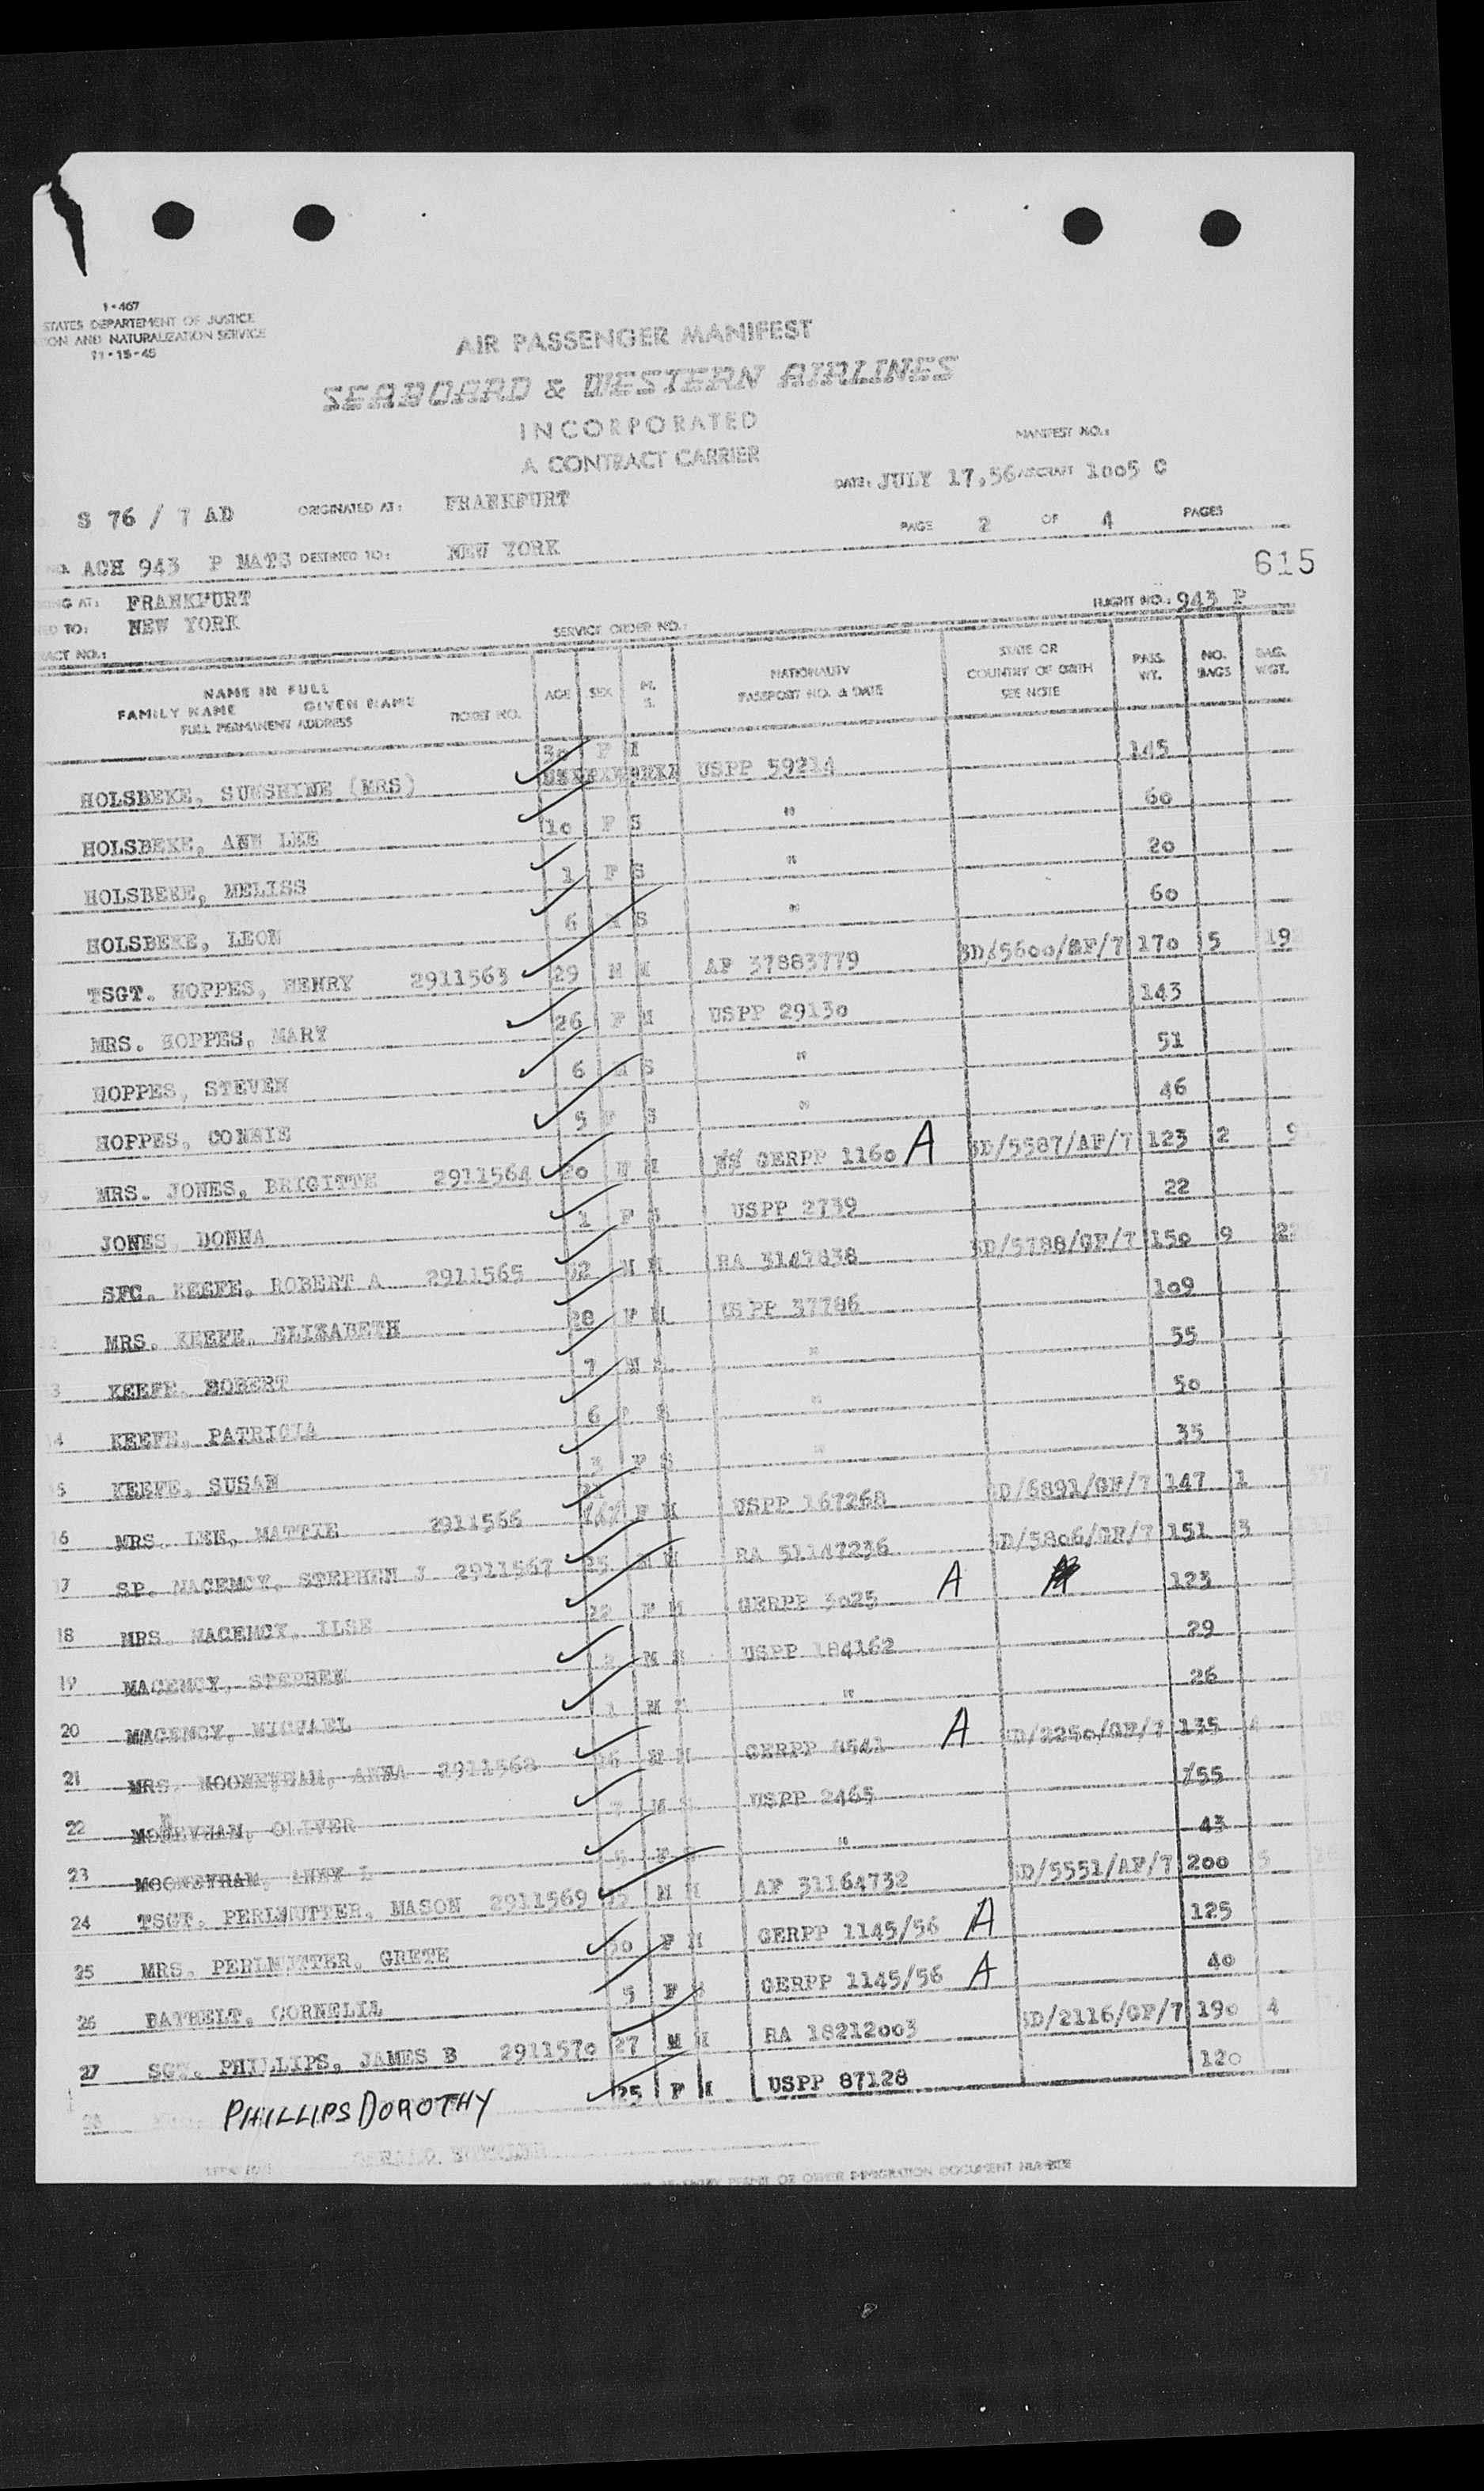 1-467
STATES DEPARTEMENT OF JUSTICE
ION AND NATURALIZATION SERVICE
11-15-45
AIR PASSENGER MANIFEST
SEABOARD & WESTERN AIRLINES
INCORPORATED
A CONTRACT CARRIER
MANIFEST NO.:
DATE: JULY 17,56 AIRCRAFT 1005 C
S 76 / 7 AD ORIGINATED AT: FRANKFURT
PAGE 2 OF 4 PAGES
NO. ACH 943 P MATS DESTINED TO: NEW YORK
615
ING AT: FRANKFURT
FLIGHT NO.: 943 P
ED TO: NEW YORK
SERVICE ORDER NO.:
RACT NO.:
NAME IN FULL
FAMILY NAME GIVEN NAME
FULL PERMANENT ADDRESS
TICKET NO. AGE SEX M. S.
NATIONALITY
PASSPORT NO. & DATE
STATE OR
COUNTRY OF BIRTH
SEE NOTE
PASS. WT. NO. BAGS BAG. WGT.
HOLSBEKE, SUNSHINE (MRS) 30 F M USPP 59214 145
HOLSBEKE, ANN LEE 10 F S " 60
HOLSBEKE, MELISS 1 F S " 20
HOLSBEKE, LEON 6 M S " 60
TSGT. HOPPES, HENRY 2911563 29 M M AF 37883779 SD/5600/GF/7 170 5 19
MRS. HOPPES, MARY 26 F M USPP 29130 143
HOPPES, STEVEN 6 M S " 51
HOPPES, CONNIE 5 F S " 46
MRS. JONES, BRIGITTE 2911564 20 M M GERPP 1160 A SD/5587/AF/7 123 2 9
JONES, DONNA 1 F S USPP 2739 22
SFC. KEEFE, ROBERT A 2911565 32 M M RA 3147838 SD/5788/GF/7 150 9 22
MRS. KEEFE, ELIZABETH 28 F M USPP 37786 109
KEEFE, ROBERT 7 M S " 55
14 KEEFE, PATRICIA 6 F S " 50
15 KEEFE, SUSAN 3 F S " 35
16 MRS. LEE, MATTIE 2911566 F M USPP 167268 SD/6891/GF/7 147 1 37
17 SP. MACEMCY, STEPHEN J 2911567 25 M M RA 51147236 SD/5806/GF/7 151 3
18 MRS. MACEMCY, ILSE 22 F M GERPP 3025 A 123
19 MACEMCY, STEPHEN 2 M S USPP 184162 29
20 MACEMCY, MICHAEL 1 M S " 26
21 MRS. MOONEYHAM, ANNA 2911568 26 M M GERPP 8541 A SD/2250/GF/7 135 4
22 MOONEYHAM, OLIVER 7 M S USPP 2465 55
23 MOONEYHAM, 5 F S " 43
24 TSGT. PERLMUTTER, MASON 2911569 M M AF 31164732 SD/5551/AF/7 200 5
25 MRS. PERLMUTTER, GRETE 30 F M GERPP 1145/56 A 125
26 BATHELT, CORNELIA 5 F S GERPP 1145/56 A 40
27 SGT. PHILLIPS, JAMES B 2911570 27 M M RA 18212003 SD/2116/GF/7 190 4
28 PHILLIPS DOROTHY 25 F M USPP 87128 120
PERMIT OR OTHER IMMIGRATION DOCUMENT NUMBER